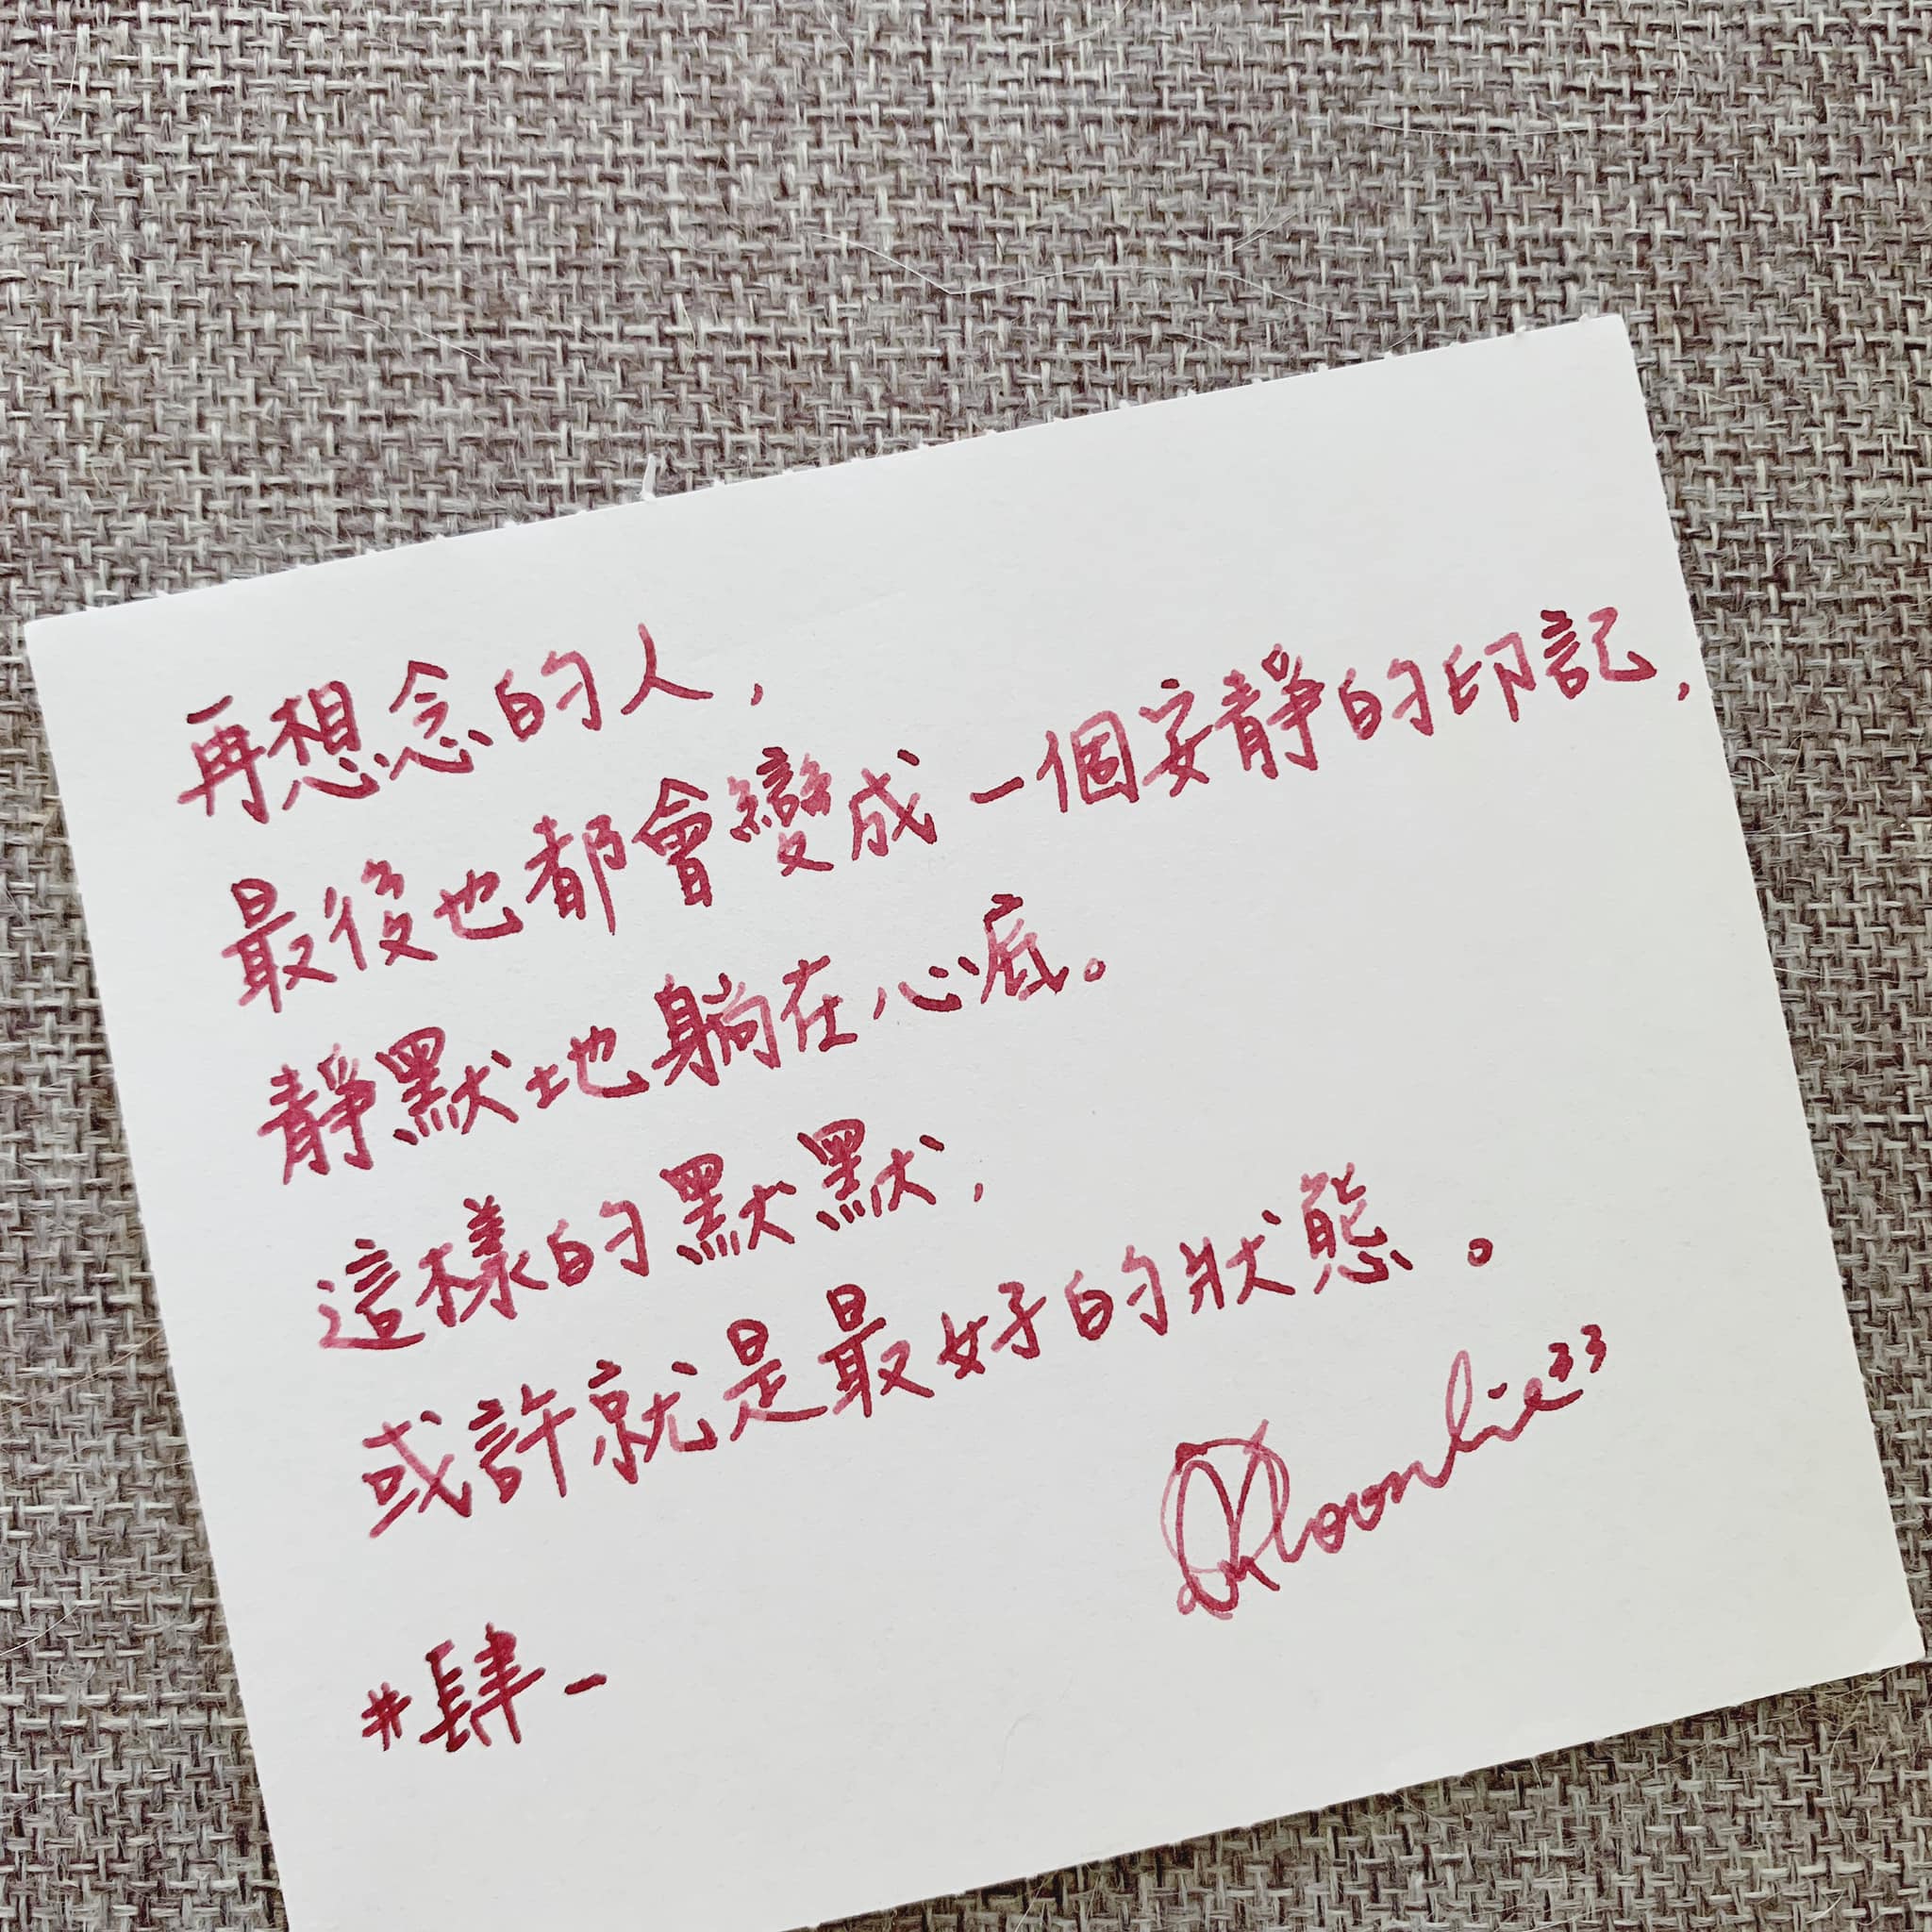 再想念的人，
最後也都會變成一個安靜的印記，
靜默地躺在心底。
這樣的默默，
或許就是最好的狀態。
Moonlie33
#肆一